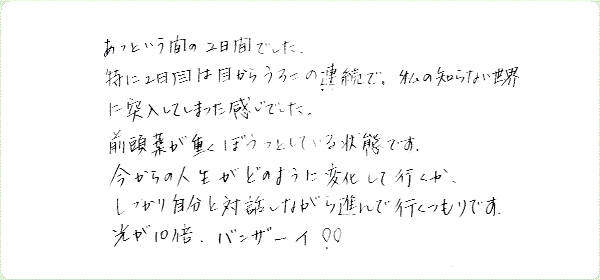 あっという間の2日間でした.
特に2日目は目からうろこの連続で。私の知らない世界
に突入してしまった感じでした.
前頭葉が重くぼうっとしている状態です.
今からの人生がどのように変化して行くか.
しっかり自分と対話しながら進んで行くつもりです.
光が10倍. バンザーイ!!